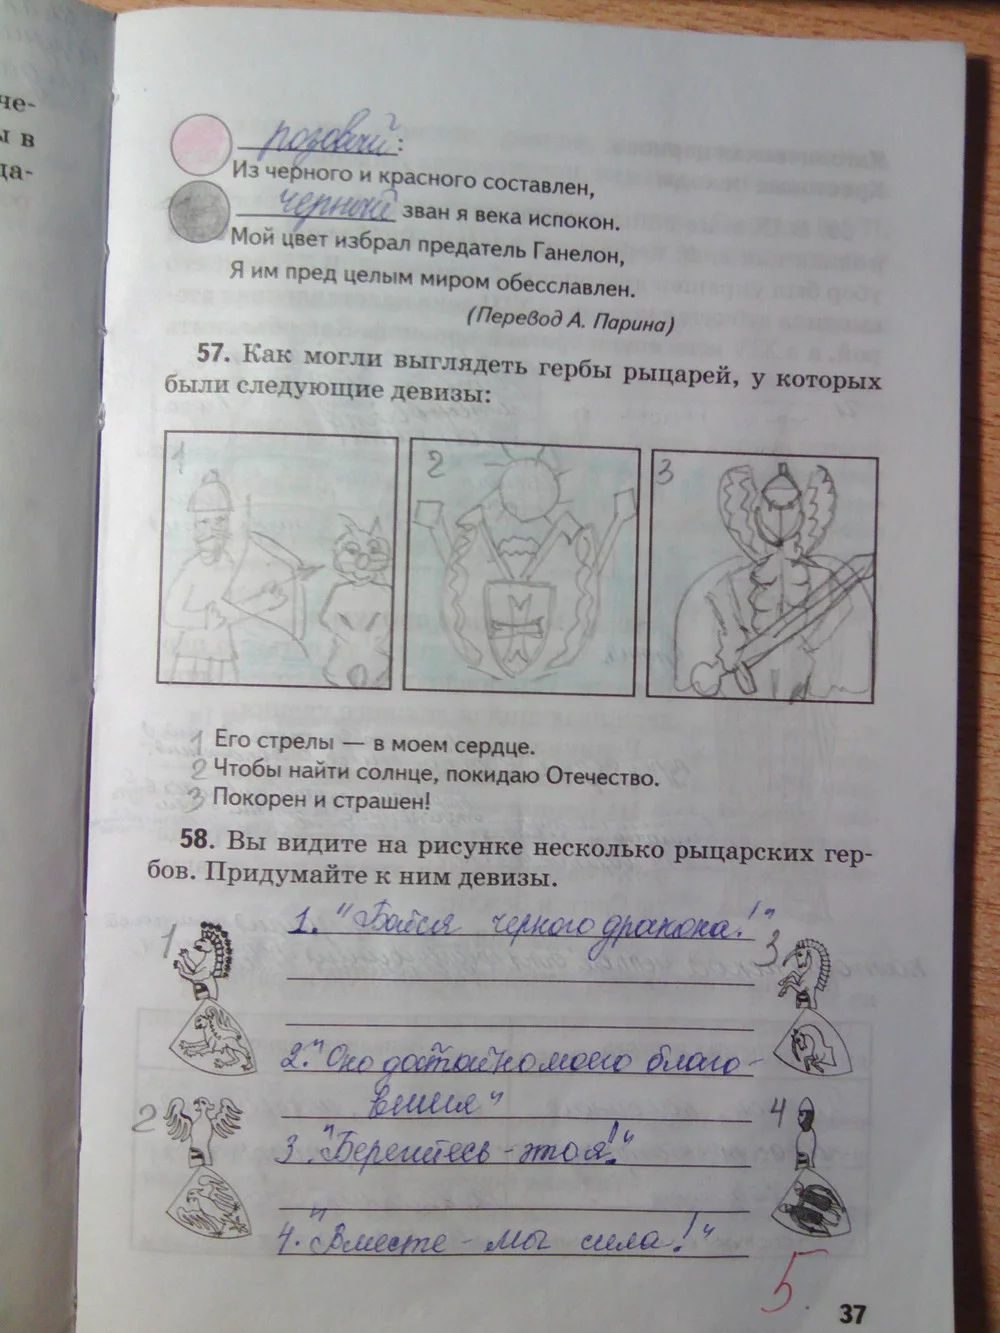 че-
ы в
да-
розовый:
Из черного и красного составлен,
черный зван я века испокон.
Мой цвет избрал предатель Ганелон,
Я им пред целым миром обесславлен.
(Перевод А. Парина)
57. Как могли выглядеть гербы рыцарей, у которых
были следующие девизы:
1 2 3
1 Его стрелы — в моем сердце.
2 Чтобы найти солнце, покидаю Отечество.
3 Покорен и страшен!
58. Вы видите на рисунке несколько рыцарских гер-
бов. Придумайте к ним девизы.
1 1. "Бойся черного дракона!" 3
2. "Оно достойно моего благо-
2 вния" 4
3. "Берегитесь - это я!"
4. "Вместе - мы сила!"
5.
37